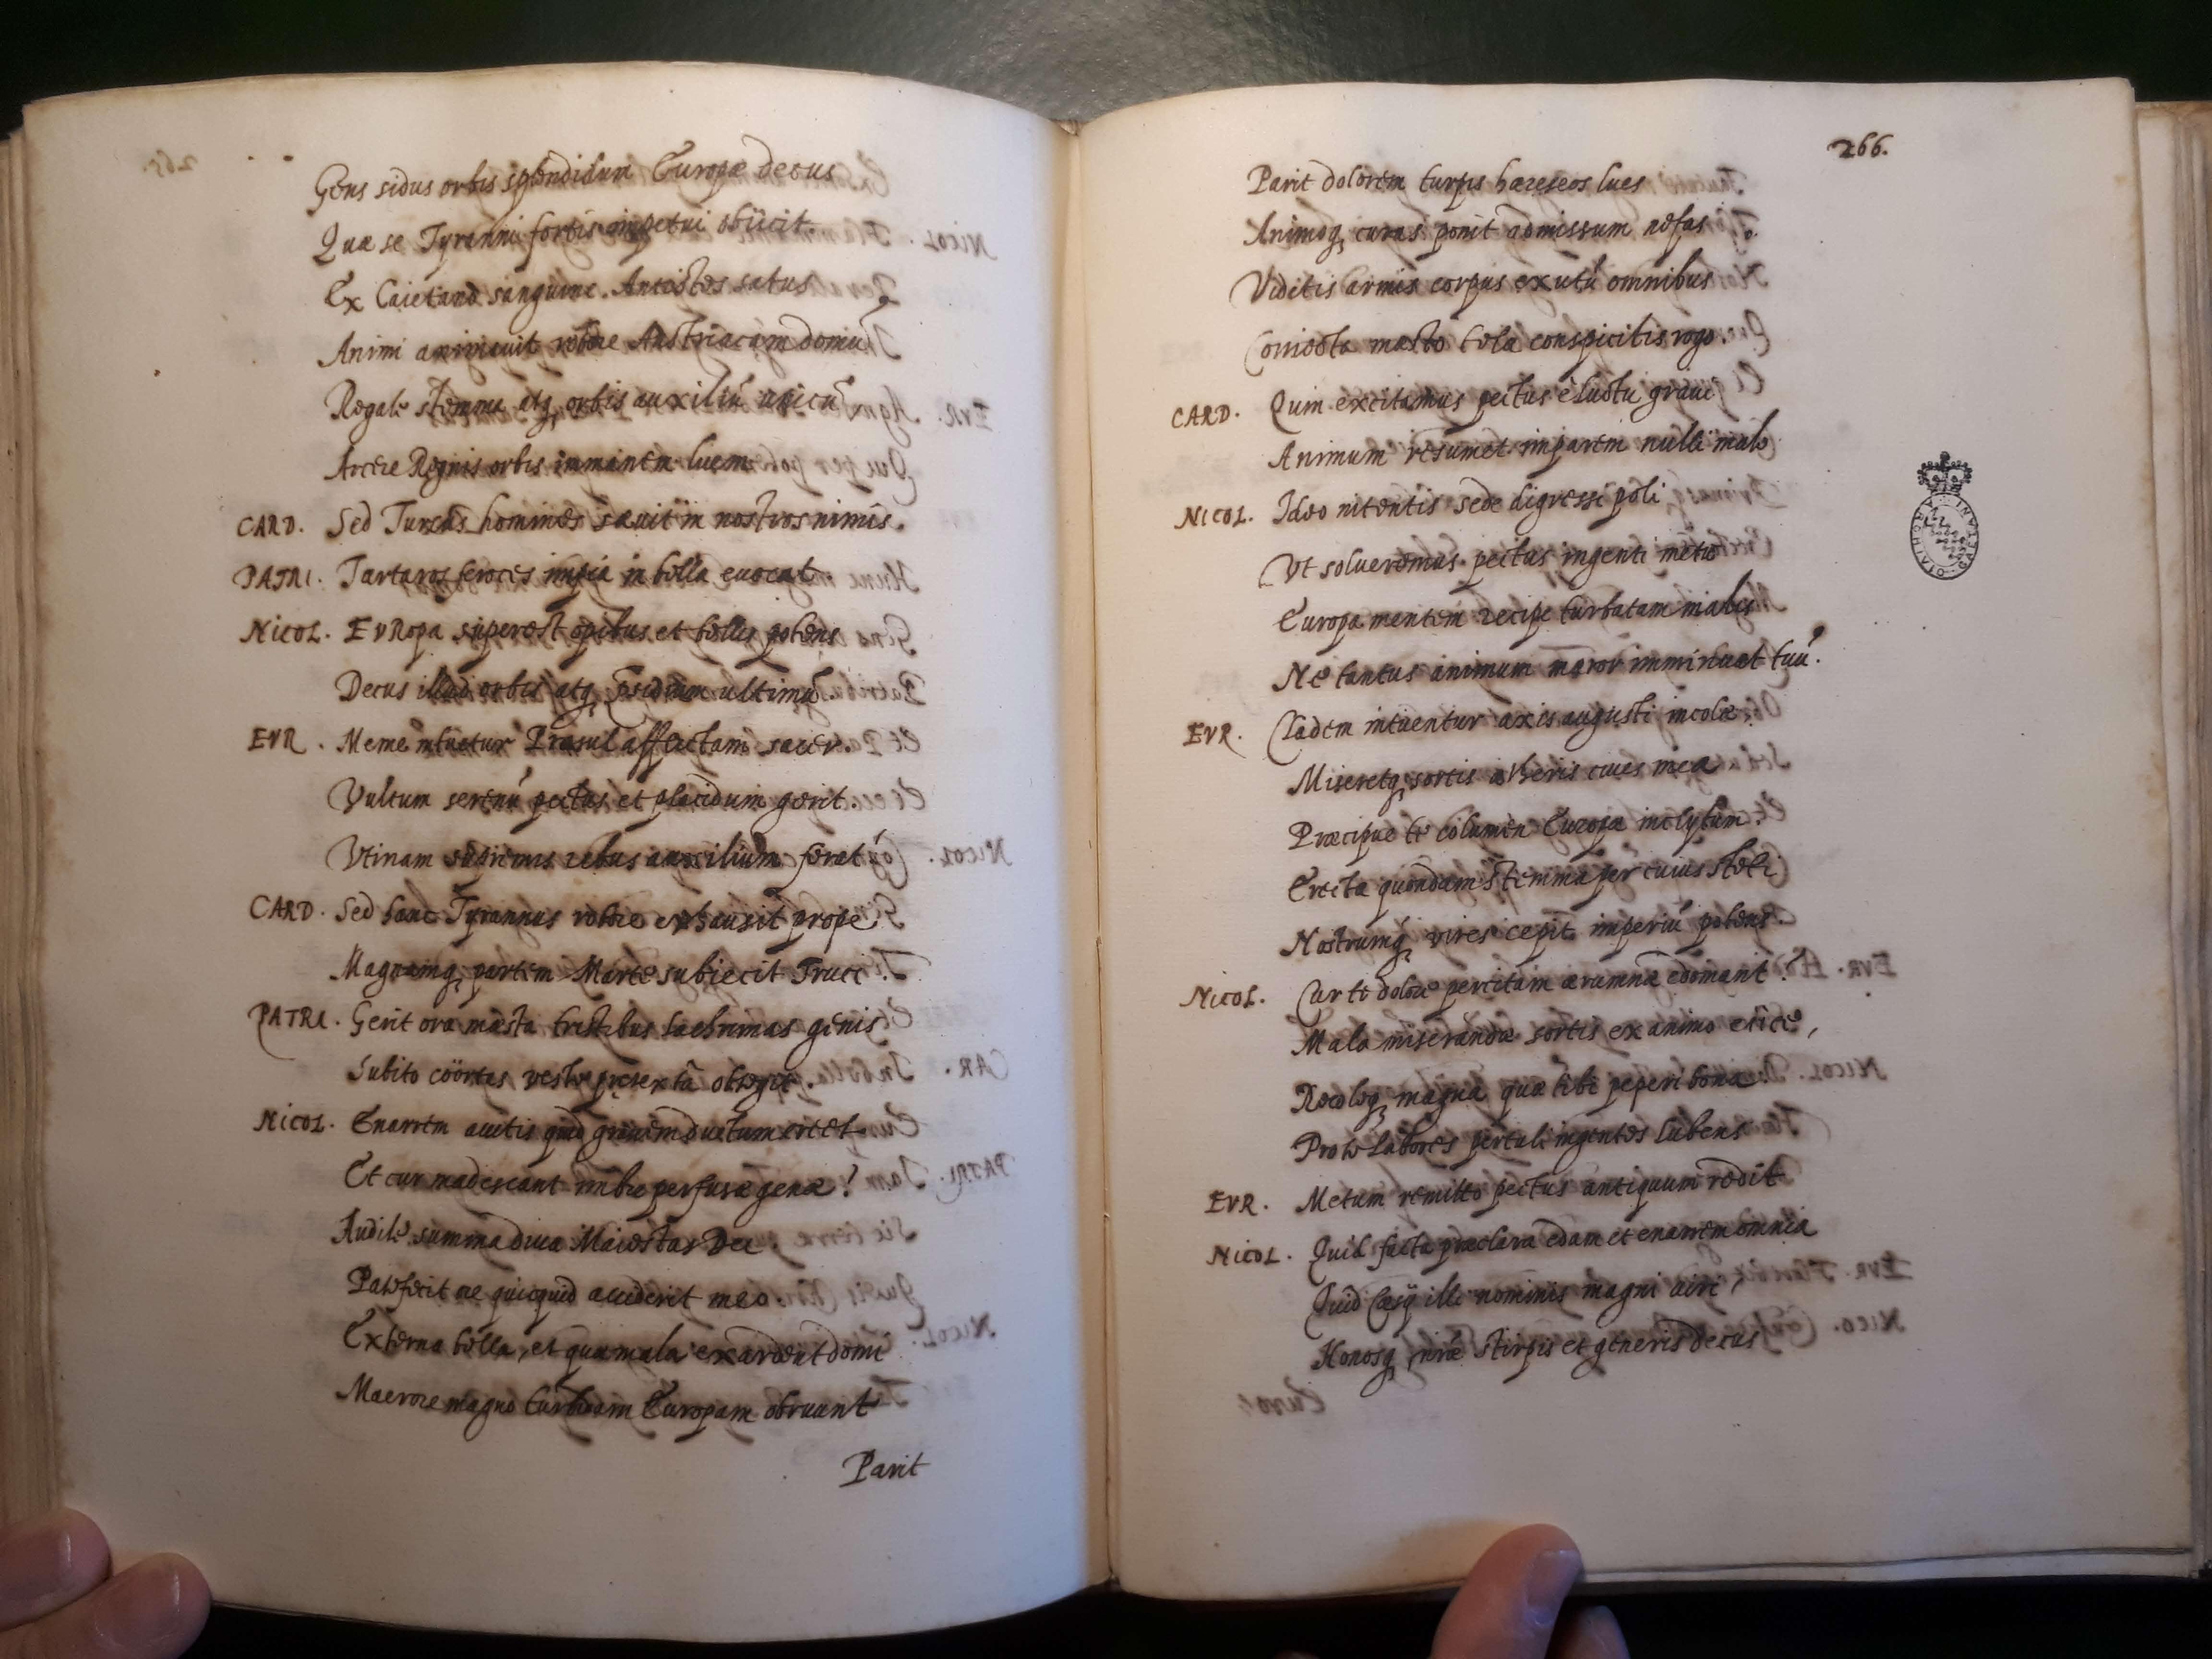 Gens sidus orbis splendidum Europæ decus
Quæ se Tyranni fortis impetui obijcit.
Ex Caietano sanguine Antistes satus
Animi animauit robore Austriacam domũ
Regale stemma atq; orbis auxiliũ unicũ
Arcere Regnis orbis immanem luem.
CARD. Sed Turcas homines sæuit in nostros nimis.
PATRI. Tartaros feroces impia in bella euocat
NICOL. EVRopa superest opibus et bellis potens
Decus illud orbis atq; præsidium ultimũ.
EVR. Meme intuetur Præsul afflictam sacer.
Vultum serenũ pectus et placidum gerit.
Vtinam supremis rebus auxilium ferat
CARD. Sed hanc Tyrannus robore exhausit prope
Magnamq; partem Marte subiecit Truci.
PATRI. Gerit ora mæsta tristibus lachrimas genis
Subito coörtas veste prętexta obtegit.
NICOL. Enarrem auitis quid grauem luctum creet
Et cur madescant imbre perfusæ genæ?
Audite summa diua Maiestas Dei
Patefecit ne quicquid acciderit meo.
Externa bella, et quæ mala exardent domi
Maerore magno turbidam Europam obruunt
Parit
266.
Parit dolorem turpis hæreseos lues
Animoq; curas ponit admissum nefas
Viditis armis corpus exutũ omnibus
Coniecta mæsto tela conspicitis rogo.
CARD. Quin excitamus pectus e luctu graui
Animum resumet imparem nulli malo
NICOL. Ideo nitentis sede digressi poli
Vt solueremus pectus ingenti metu
Europa mentem recipe turbatam malis
Ne tantus animum mæror imminuat tuũ.
EVR. Cladem intuentur axis augusti incolæ,
Miseretq; sortis ætheris ciues meæ
Præcipue te columen Europæ inclytum
Erecta quondam stemma per cuius steti
Nostrumq; vires cepit imperiũ potens.
NICOL. Cur te dolore percitam ærumnæ edomant?
Mala miserandæ sortis ex animo eiice,
Recoleq; magna quæ tibi peperi bona
Pro te labores pertuli ingentes lubens
EVR. Metum remitto pectus antiquum redit
NICOL. Quid facta præclara edam et enarrem omnia
Quid Cæsq; illi nominis magni viri,
Honosq; nr̃æ stirpis et generis decus